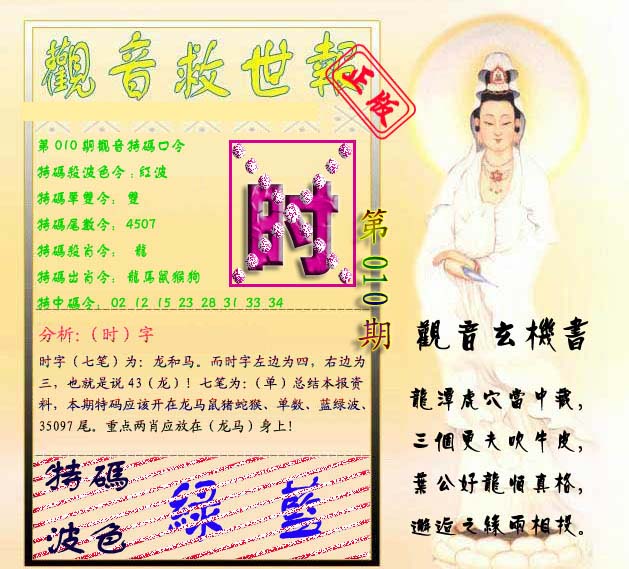 觀音救世報
正版
第010期觀音特碼口令
特碼殺波色令:紅波
特碼單雙令: 雙
特碼尾數令: 4507
特碼殺肖令: 龍
特碼出肖令: 龍馬鼠猴狗
特中碼令: 02 12 15 23 28 31 33 34
时
第010期
分析:(时)字
时字(七笔)为: 龙和马。而时字左边为四, 右边为
三, 也就是说 43(龙)! 七笔为:(单)总结本报资
料, 本期特码应该开在龙马鼠猪蛇猴、单数、蓝绿波、
35097 尾。重点两肖应放在(龙马)身上!
特碼
波色
綠 藍
觀音玄機書
龍潭虎穴當中栽,
三個更夫吹牛皮,
葉公好龍恒真格,
邂逅之緣兩相投。